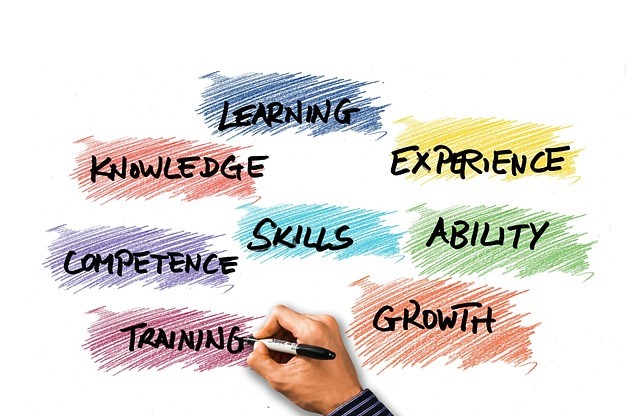 LEARNING
KNOWLEDGE
EXPERIENCE
SKILLS
ABILITY
COMPETENCE
GROWTH
TRAINING